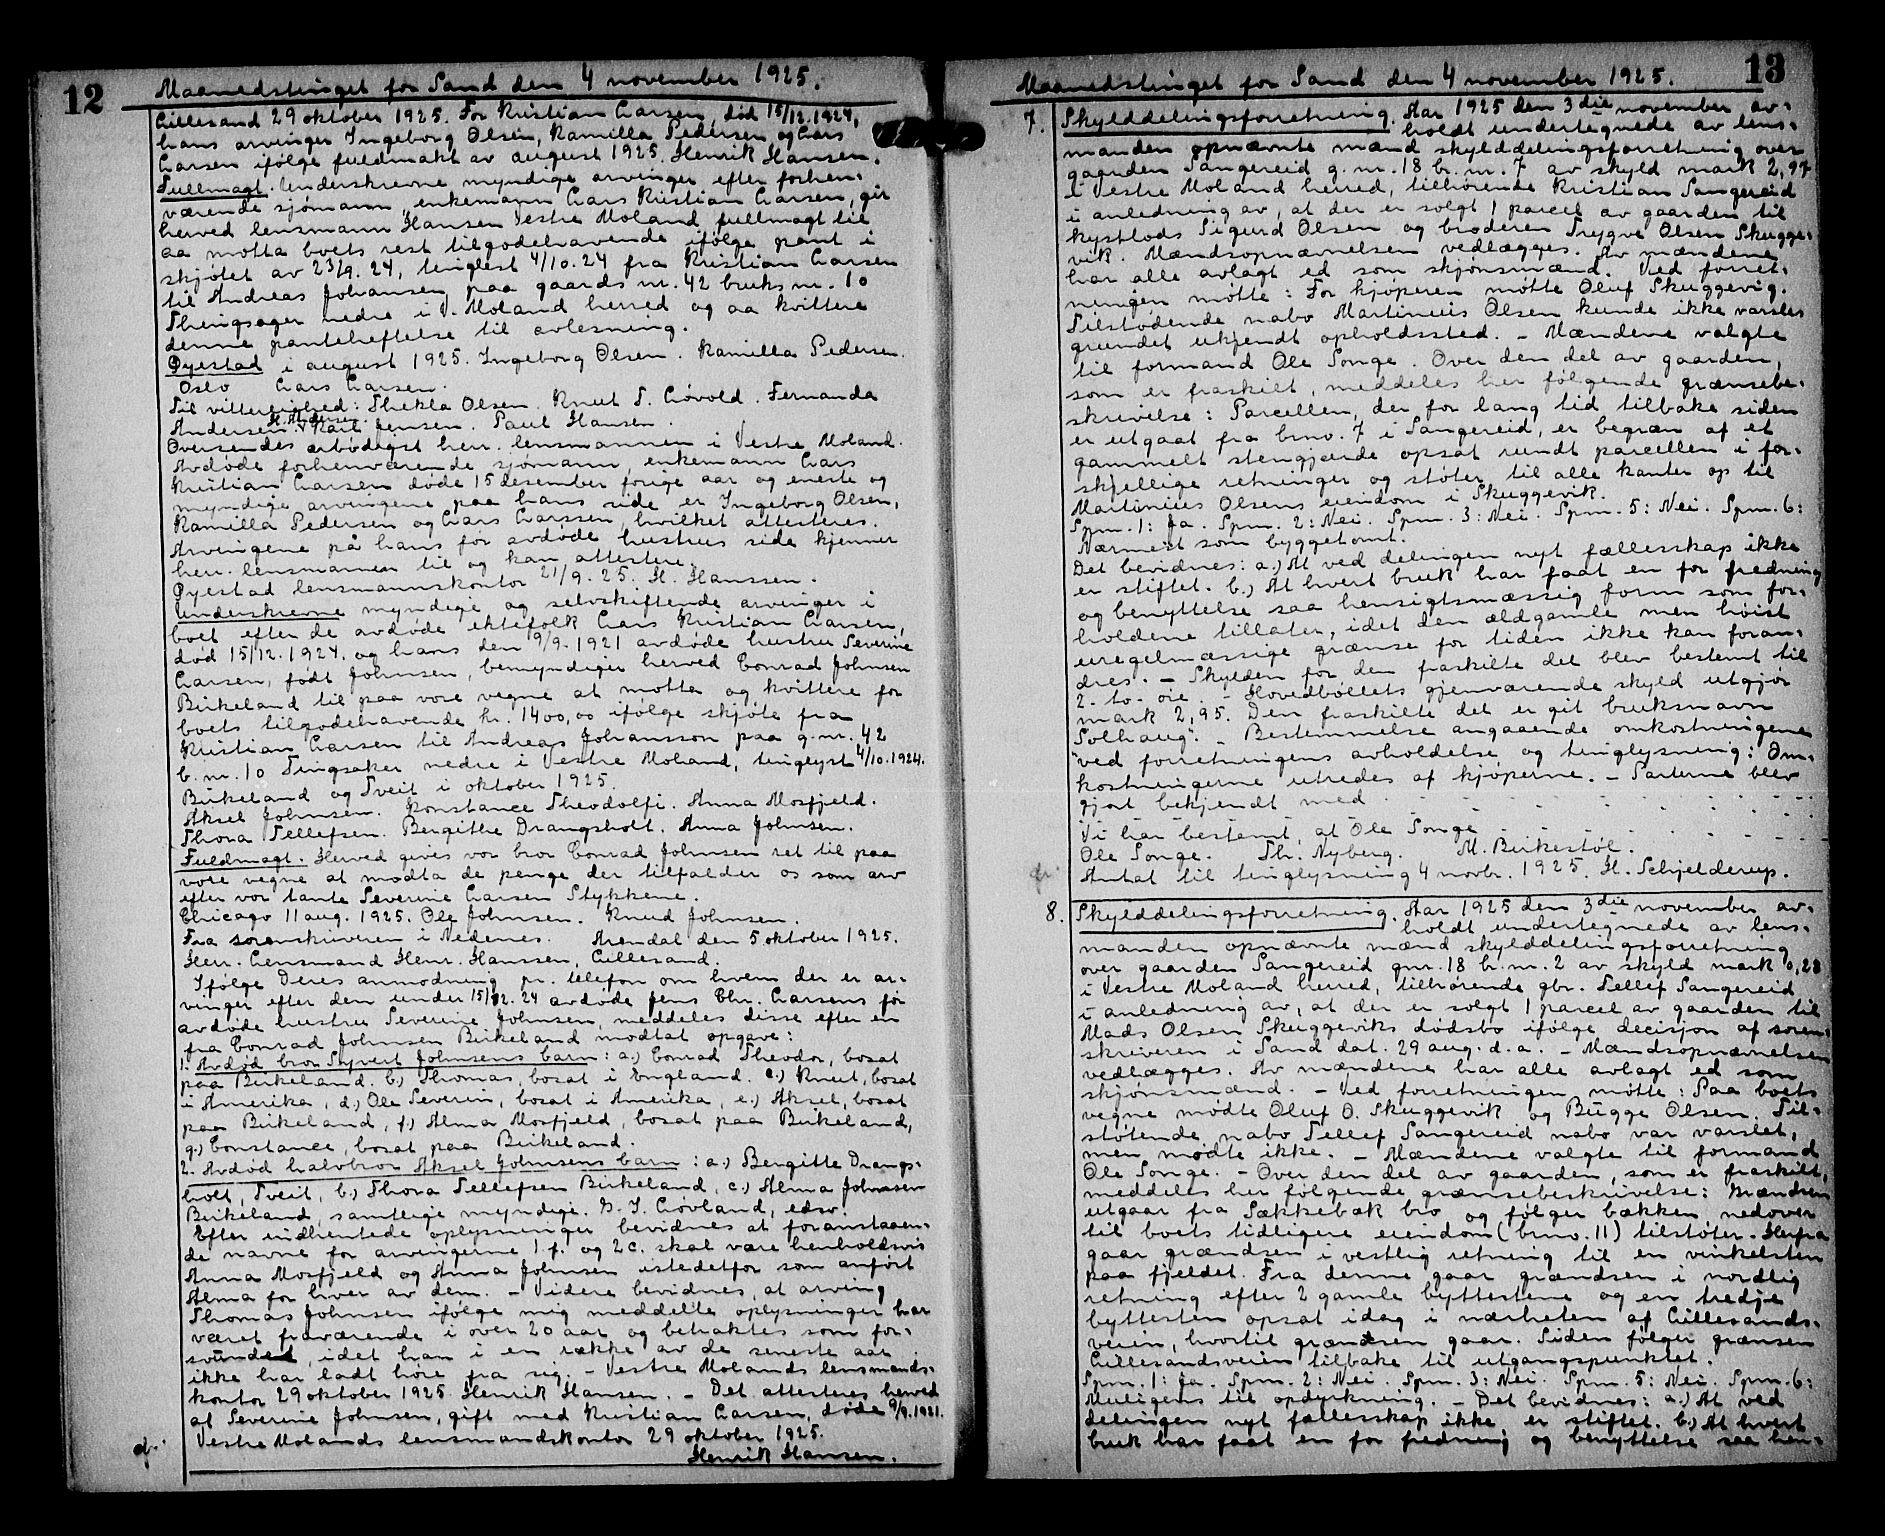 12
Maanedstinget for Sand den 4 november 1925.
Lillesand 29 oktober 1925. For Kristian Larsen, død 15/12.1924,
hans arvinger Ingeborg Olsen, Kamilla Pedersen og Lars
Larsen ifølge fuldmakt av august 1925. Henrik Hansen.
Fullmagt. Underskrevne myndige arvinger efter forhen-
værende sjømann, enkemann Lars Kristian Larsen, gir
herved lensmann Hansen Vestre Moland fullmagt til
aa motta boets rest tilgodehavende ifølge pant i
skjøtet av 23/9.24, tinglest 4/10.24 fra Kristian Larsen
til Andreas Johansen paa gaards nr. 42 bruks nr. 10
Thingsager nedre i V. Moland herred og aa kvittere
denne panteheftelse til avlesning.
Øyestad i august 1925. Ingeborg Olsen. Kamilla Pedersen.
Oslo Lars Larsen.
Til vitterlighed: Thekla Olsen. Knut T. Løvold. Fernanda
Andersen. Karl Jensen. Paul Hansen.
Oversendes ærbødigst herr. lensmannen i Vestre Moland.
Avdøde forhenværende sjømann, enkemann Lars
Kristian Larsen døde 15 desember forige aar og eneste og
myndige arvingene paa hans side er Ingeborg Olsen,
Kamilla Pedersen og Lars Larssen, hvilket attesteres.
Arvingene på hans før avdøde hustrus side kjenner
herr. lensmannen til og kan attestere.
Øyestad lensmannskontor 21/9.25. H. Hanssen.
Underskrevne myndige og selvskiftende arvinger i
boet efter de avdøde ektefolk Lars Kristian Larsen,
død 15/12.1924. og hans den 9/9.1921 avdøde hustru Severine
Larsen, født Johnsen, bemyndiger herved Conrad Johnsen
Birkeland til paa vore vegne at motta og kvittere for
boets tilgodehavende kr. 1400,00 ifølge skjøte fra
Kristian Larsen til Andreas Johansson paa g.nr. 42
b.nr. 10 Tingsaker nedre i Vestre Moland, tinglyst 4/10.1924.
Birkeland og Tveit i oktober 1925.
Aksel Johnsen. Konstance Theodolfi. Anna Mosfjeld.
Thora Tellefsen. Bergithe Drangsholt. Anna Johnsen.
Fuldmagt. Herved gives vor bror Conrad Johnsen ret til paa
vore vegne at modta de penge der tilfalder os som arv
efter vor tante Severine Larsen Stykkene.
Chicago 11 aug. 1925. Ole Johnsen. Knud Johnsen.
Fra sorenskriveren i Nedenes. Arendal den 5 oktober 1925.
Herr. Lensmand Henr. Hanssen, Lillesand.
Ifølge Deres anmodning pr. telefon om hvem der er ar-
vinger efter den under 15/12.24 avdøde Jens Chr. Larsens før
avdøde hustru Severine Johnsen, meddeles disse efter en
fra Conrad Johnsen Birkeland modtat opgave:
1. Avdød bror Syvert Johnsens barn: a.) Conrad Theodor, bosat
paa Birkeland. b.) Thomas, bosat i England. c.) Knut, bosat
i Amerika, d.) Ole Severin, bosat i Amerika, e.) Aksel, bosat
paa Birkeland, f.) Alma Mosfjeld, bosat paa Birkeland,
g.) Constance, bosat paa Birkeland.
2. Avdød halvbror Aksel Johnsens barn: a.) Bergitte Drangs-
holt, Tveit, b.) Thora Tellefsen Birkeland, c.) Alma Johnsen
Birkeland, samtlige myndige. Løvland, edsv.
Efter indhentede oplysninger bevidnes at foranstaaen-
de navne for arvingerne 1.f. og 2c. skal være henholdsvis
Anna Mosfjeld og Anna Johnsen istedetfor som anført
Alma for hver av dem. - Videre bevidnes, at arving
Thomas Johnsen ifølge mig meddelte oplysninger har
været fraværende i over 20 aar og betraktes som for-
svundet, idet han i en række av de seneste aar
ikke har ladt høre fra sig. - Vestre Molands lensmands-
kontor 29 oktober 1925. Henrik Hansen. - Det attesteres herved
at Severine Johnsen, gift med Kristian Larsen, døde 9/9.1921.
Vestre Molands lensmandskontor 29 oktober 1925.
Henrik Hansen.
13
Maanedstinget for Sand den 4 november 1925.
7. Skylddelingsforretning. Aar 1925 den 3die november av-
holdt undertegnede av lens-
manden opnævnte mænd skylddelingsforretning over
gaarden Sangereid g.nr. 18 br.nr. 7 av skyld mark 2,97
i Vestre Moland herred, tilhørende Kristian Sangereid
i anledning av, at der er solgt 1 parcel av gaarden til
kystlods Sigurd Olsen og broderen Trygve Olsen Skugge-
vik. Mændsopnævnelsen vedlægges. Av mændene
har alle avlagt ed som skjønsmænd. Ved forret-
ningen møtte: For kjøperen møtte Oluf Skuggevig.
Tilstødende nabo Martinius Olsen kunde ikke varsles
grundet ukjendt opholdssted. - Mændene valgte
til formand Ole Songe. Over den del av gaarden,
som er fraskilt, meddeles her følgende grænsebe-
skrivelse: Parcellen, der for lang tid tilbake siden
er utgaat fra brno. 7 i Sangereid, er begræn af et
gammelt stengjærde opsat rundt parcellen i for-
skjellige retninger og støter til alle kanter op til
Martinius Olsens eiendom i Skuggevik.
Spm. 1: Ja. Spm. 2: Nei. Spm. 3: Nei. Spm. 5: Nei. Spm. 6:
Nærmest som byggetomt.
Det bevidnes: a.) At ved delingen nyt fællesskap ikke
er stiftet. b.) At hvert bruk har faat en for fredning
og benyttelse saa hensigtsmæssig form som for-
holdene tillater, idet den ældgamle men høist
uregelmæssige grænse for tiden ikke kan foran-
dres. - Skylden for den fraskilte del blev bestemt til
2 - to - øre. - Hovedbøllets gjenværende skyld utgjør
mark 2,95. Den fraskilte del er git bruksnavn
"Solhaug". - Bestemmelse angaaende omkostningene
ved forretningens avholdelse og tinglysning: Om-
kostningerne utredes af kjøperne. - Parterne blev
gjort bekjendt med - - - - - - -
Vi har bestemt, at Ole Songe - - - - -
Ole Songe. Th. Nyberg. M. Birkestøl.
Antat til tinglysning 4 novbr. 1925. H. Schjelderup.
8. Skylddelingsforretning. Aar 1925 den 3die november av-
holdt undertegnede av lens-
manden opnævnte mænd skylddelingsforretning
over gaarden Sangereid gnr. 18 br.nr. 2 av skyld mark 0,28
i Vestre Moland herred, tilhørende gbr. Tellef Sangereid
i anledning av, at der er solgt 1 parcel av gaarden til
Mads Olsen Skuggeviks dødsbo ifølge decisjon af soren-
skriveren i Sand dat. 29 aug. d.a. - Mændsopnævnelsen
vedlægges. Av mændene har alle avlagt ed som
skjønsmænd. - Ved forretningen møtte: Paa boets
vegne mødte Oluf O. Skuggevik og Bugge Olsen. Til-
støtende nabo Tellef Sangereid nabo var varslet,
men mødte ikke. - Mændene valgte til formand
Ole Songe. - Over den del av gaarden, som er fraskilt,
meddeles her følgende grænsebeskrivelse: Grændsen
utgaar fra Sækkebæk bro og følger bækken nedover
til boets tidligere eiendom (brno. 11) tilstøter. Herfra
gaar grændsen i vestlig retning til en vinkelsten
paa fjeldet. Fra denne gaar grændsen i nordlig
retning efter 2 gamle byttestene og en tredje
byttesten opsat idag i nærheten af Lillesands-
veien, hvortil grændsen gaar. Siden følger grænsen
Lillesandsveien tilbake til utgangspunktet.
Spm. 1: Ja. Spm. 2: Nei. Spm. 3: Nei. Spm. 5: Nei. Spm. 6:
Muligens til opdyrkning. - Det bevidnes: a.) At ved
delingen nyt fællesskap ikke er stiftet. b.) At hvert
bruk har faat en for fredning og benyttelse saa hen-